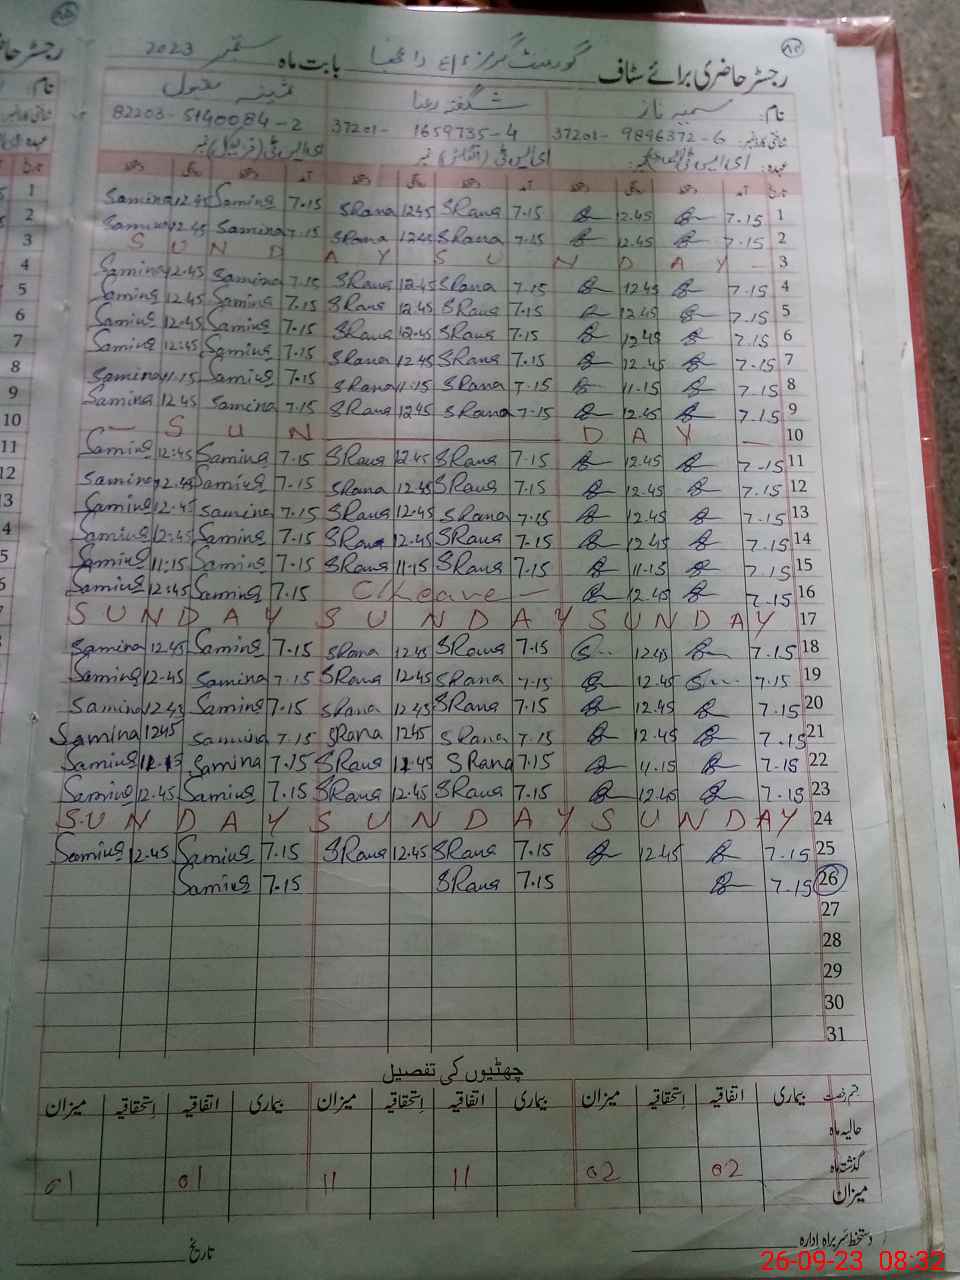 رجسٹر حاضری برائے سٹاف گورنمنٹ گرلز بابت ماہ ستمبر 2023
نام: سمیہ ناز شگفتہ رعنا ثمینہ مقبول
شناختی کارڈ نمبر: 37201-9896372-6 37201-1659735-4 82203-5140084-2
1 7.15 2.45 7.15 SRana 1245 SRana 7.15 Samina 12.45 Samina
2 7.15 12.45 7.15 SRana 12.45 SRana 7.15 Samina 12.45 Samina
3 S U N D A Y S U N D A Y
4 7.15 12.45 7.15 SRana 12.45 SRana 7.15 Samina 12.45 Samina
5 7.15 12.45 7.15 SRana 12.45 SRana 7.15 Samina 12.45 Samina
6 7.15 12.45 7.15 SRana 12.45 SRana 7.15 Samina 12.45 Samina
7 7.15 12.45 7.15 SRana 12.45 SRana 7.15 Samina 12:45 Samina
8 7.15 11.15 7.15 SRana 11.15 SRana 7.15 Samina 11.15 Samina
9 7.15 12.45 7.15 SRana 12.45 SRana 7.15 Samina 12.45 Samina
10 S U N D A Y
11 7.15 12.45 7.15 SRana 12.45 SRana 7.15 Samina 12:45 Samina
12 7.15 12.45 7.15 SRana 12.45 SRana 7.15 Samina 12.45 Samina
13 7.15 12.45 7.15 SRana 12.45 SRana 7.15 Samina 12.45 Samina
14 7.15 12.45 7.15 SRana 12.45 SRana 7.15 Samina 12:45 Samina
15 7.15 11.15 7.15 SRana 11.15 SRana 7.15 Samina 11:15 Samina
16 7.15 12.45 C/Leave 7.15 Samina 12:45 Samina
17 S U N D A Y S U N D A Y S U N D A Y
18 7.15 12.45 7.15 SRana 12.45 SRana 7.15 Samina 12.45 Samina
19 7.15 12.45 7.15 SRana 12.45 SRana 7.15 Samina 12.45 Samina
20 7.15 12.45 7.15 SRana 12.45 SRana 7.15 Samina 12.45 Samina
21 7.15 12.45 7.15 SRana 1245 SRana 7.15 Samina 1245 Samina
22 7.15 11.15 7.15 SRana 11.45 SRana 7.15 Samina 11.15 Samina
23 7.15 12.45 7.15 SRana 12.45 SRana 7.15 Samina 12.45 Samina
24 S U N D A Y S U N D A Y S U N D A Y
25 7.15 12.45 7.15 SRana 12.45 SRana 7.15 Samina 12.45 Samina
26 7.15 7.15 SRana 7.15 Samina
27
28
29
30
31
چھٹیوں کی تفصیل
قسم رخصت بیماری اتفاقیہ استحقاقیہ میزان بیماری اتفاقیہ استحقاقیہ میزان بیماری اتفاقیہ استحقاقیہ میزان
حالیہ ماہ
گذشتہ ماہ 02 02 11 11 01 01
میزان
دستخط سربراہ ادارہ تاریخ
26-09-23 08:32